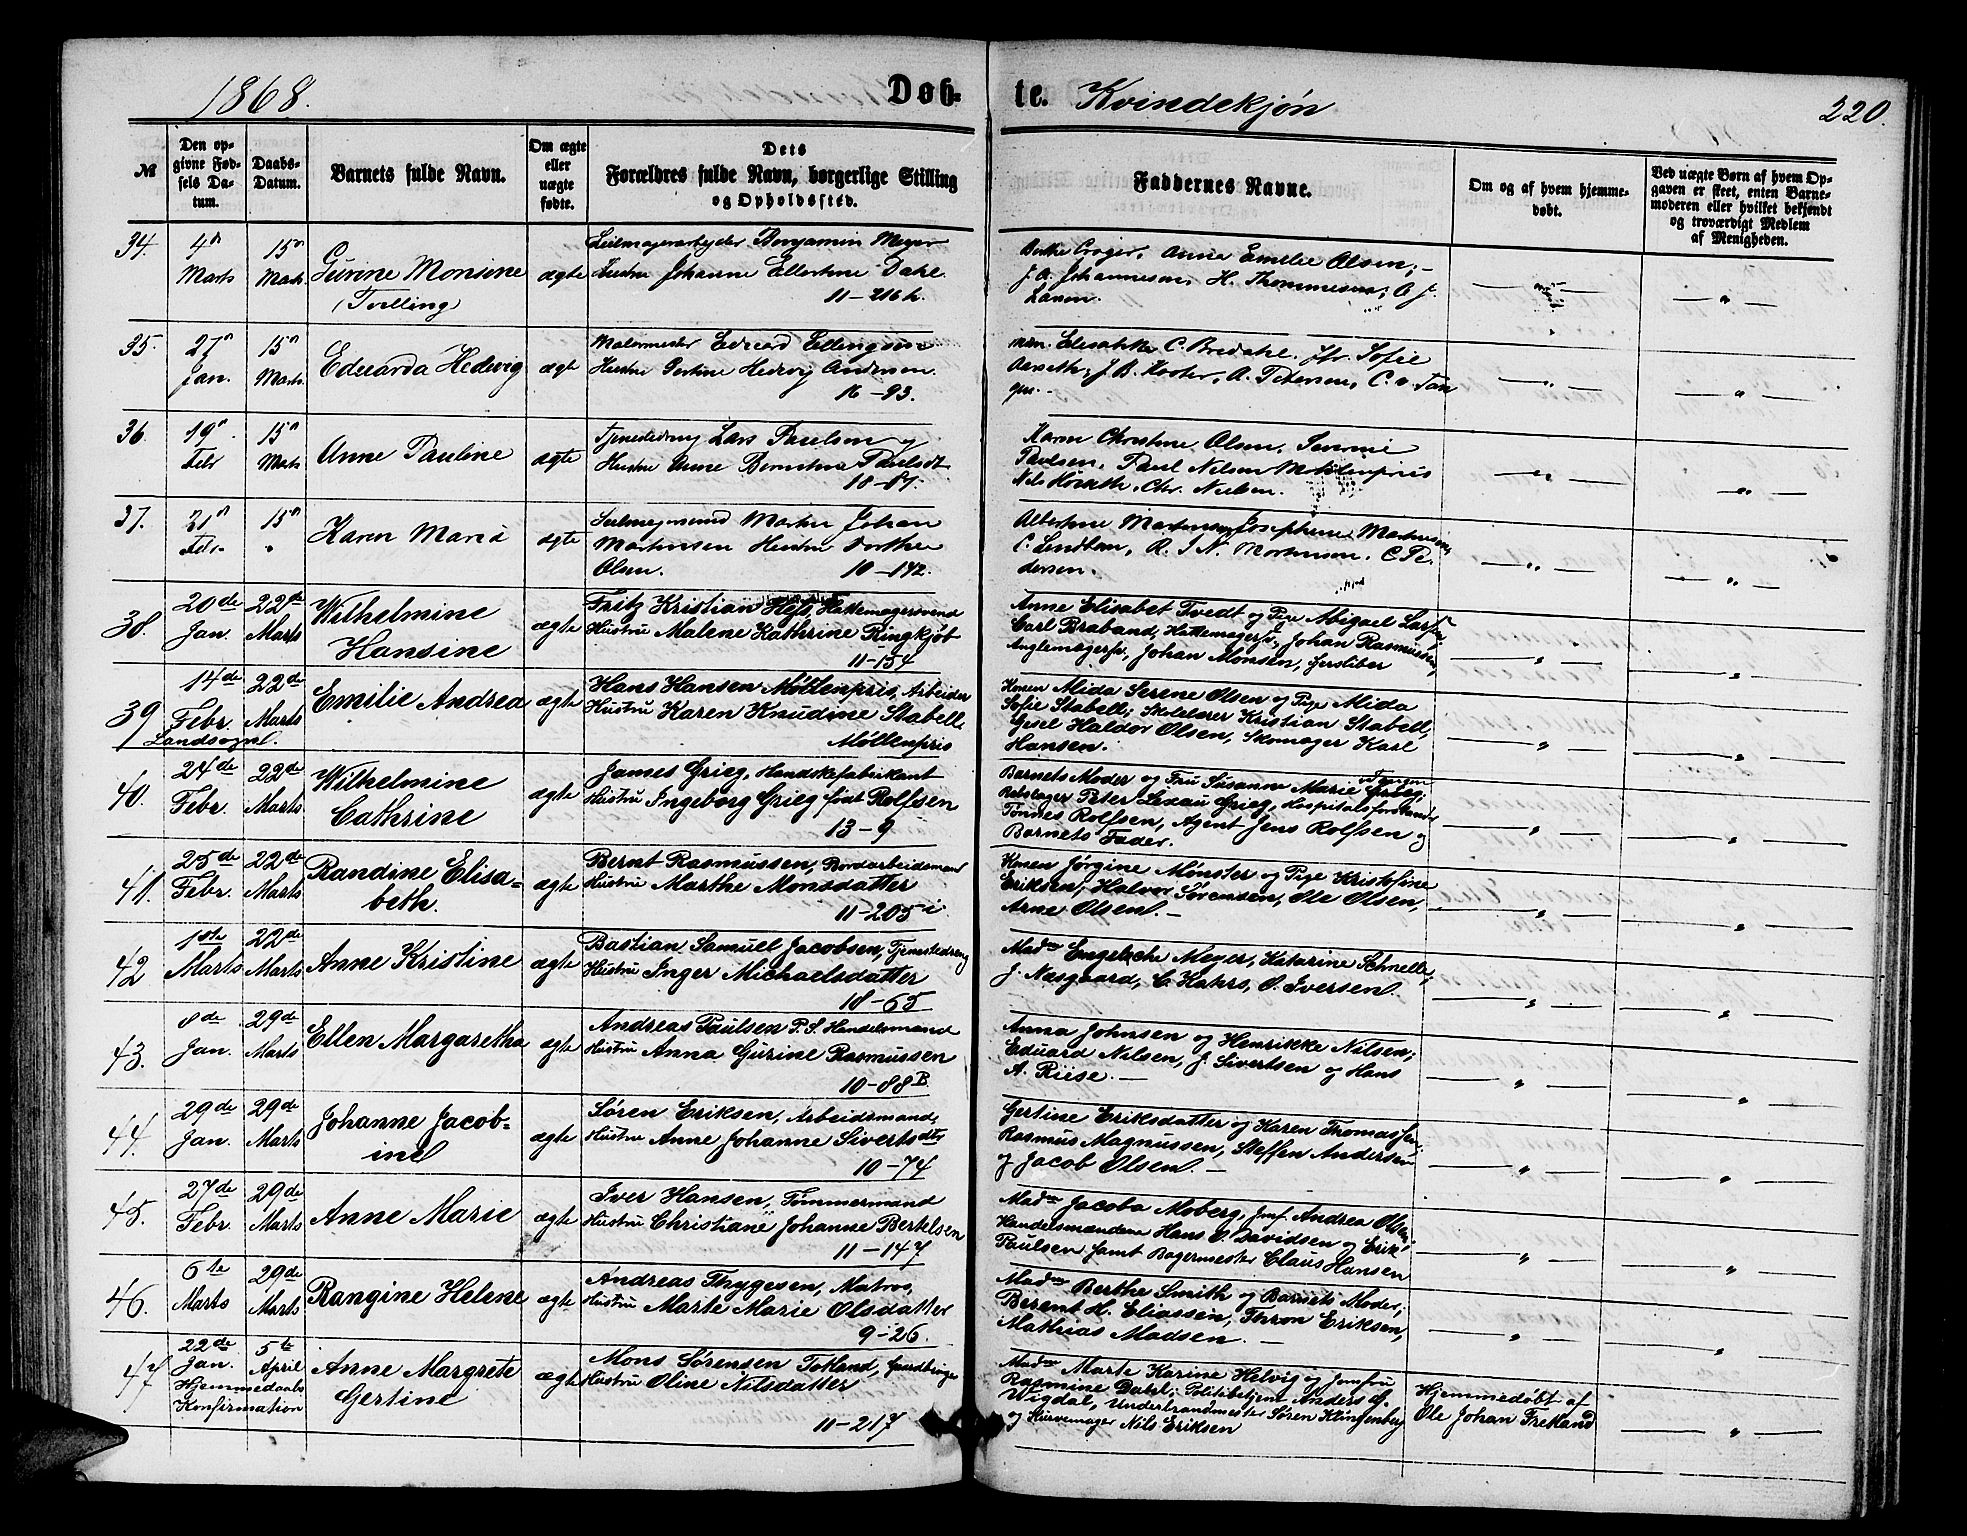 1868.
Døb-
te. Kvindekjøn
220.
№
Den op-
givne Fød-
sels Da-
tum.
Daabs-
Datum.
Barnets fulde Navn.
Om ægte
eller
uægte
fødte.
Dets
Forældres fulde Navn, borgerlige Stilling
og Opholdssted.
Faddernes Navne.
Om og af hvem hjemme-
døbt.
Ved uægte Børn af hvem Op-
gaven er skeet, enten Barne-
moderen eller hvilket bekjendt
og troværdigt Medlem
af Menigheden.
34.
4n
Marts
15n
Marts
Gurine Monsine
(Tvilling)
ægte
Seilmagerarbeyder Benjamin Meyer
Hustru Johanne Ellertine Dahl
11-216 h.
Anna Emelie Olsen;
J. A. Johannesen, H. Thommesen, O J.
Larsen.
35.
27n
Jan.
15n
Marts
Eduarda Hedevig
ægte
Malermester Eduard Ellingsen
Hustru Gertine Hedevig Andersen
16-93.
Elisabeth C. Bredahl. Jfr. Sofie
J. B. Koster, A. Petersen, C. v. Tan
gen.
36.
19n
Febr
15n
Marts
Anne Pauline
ægte
Tjenestedreng Lars Paulsen og
Hustru Anne Berntine Paulsdt
18-67.
Karen Christine Olsen, Severine
Paulsen, Paul Nilsen Møhlenpriis
Nils Horvith, Chr. Nielsen.
37.
21n
Febr
15n
Karen Marie
ægte
Seilmagersvend Martin Johan
Martinsen Hustru Dorthea
Olsen. 10-142.
Albertine Martinsen, Josephine Martinsen,
C. Lindtner, R. I N. Mortensen, C. Pe-
dersen.
38.
20de
Jan.
22de
Marts
Wilhelmine
Hansine
ægte
Fritz Kristian Hess, Hattemagersvend
Hustru Malene Kathrine Ringkjøb
11-154
Anne Elisabet Tvedt og Pige Abigael Larsen,
Carl Braband, Hattemagersv, Johan Rasmussen,
Anglemagersv, Johan Monsen, Jernstøber
39
14de
Febr
Landsognl.
22de
Marts
Emilie Andrea
ægte
Hans Hansen Møllenpris, Arbeider
Hustru Karen Knudine Stabell
Møllenpris
Konen Mida Serene Olsen og Pige Mida
Sofie Stabell; Skolelærer Kristian Stabell,
Gesel Haldor Olsen, Skomager Karl
Hansen.
40.
24de
Febr.
22de
Marts
Wilhelmine
Cathrine
ægte
James Grieg, Handskefabrikant
Hustru Ingeborg Grieg født Rolfsen
13-9
Barnets Moder og Fru Susanna Marie v Tangen Grieg;
Rebslager Peter Lexau Grieg, Hospitalsforstander
Tønnes Rolfsen, Agent Jens Rolfsen og
Barnets Fader.
41.
25de
Febr.
22de
Marts
Randine Elisa-
beth.
ægte
Bernt Rasmussen, Bordarbeidsmand
Hustru Marthe Monsdatter
11-205 i
Konen Jørgine Mønster og Pige Kristofine
Eriksen; Halvor Sørensen, Ole Olsen,
Arne Olsen.
42
1ste
Marts
22de
Marts
Anne Kristine
ægte
Bastian Samuel Jacobsen, Tjenestedreng
Hustru Inger Michaelsdatter
18-65
Madm Engelsche Meyer, Katarine Schnelle;
J. Næsgaard, C. Kahrs, O. Iversen.
43.
8de
Jan.
29de
Marts
Ellen Margaretha
ægte
Andreas Paulsen P. S. Handelsmand
Hustru Anna Gurine Rasmussen
10-88 B.
Anna Johnsen og Henrikke Nilsen;
Eduard Nilsen, J. Sivertsen og Hans
A. Riise.
44.
29de
Jan.
29de
Marts
Johanne Jacob-
ine
ægte
Søren Eriksen, Arbeidsmand,
Hustru Anne Johanne Sivertsdtr
10-74
Gertine Eriksdatter og Karen Thomassen;
Rasmus Magnussen, Steffen Andersen
og Jacob Olsen.
45.
27de
Febr.
29de
Marts
Anne Marie
ægte
Iver Hansen, Tømmermand
Hustru Christiane Johanne Bertelsen
11-147
Madm Jacoba Moberg, Jmf. Andrea Olsen;
Handelsmændene Hans O Davidsen og Erik
Paulsen samt Bagermester Claus Hansen
46.
6te
Marts
29de
Marts
Rangine Helene
ægte
Andreas Thygesen, Matros,
Hustru Marte Marie Olsdatter
9-26.
Madm Berthe Smith og Barnets Moder;
Berent H. Eliassen, Thron Eriksen,
Mathias Madsen.
47
22de
Jan.
Hjemmedaabs
Konfirmation
5te
April
Anne Margrete
Gertine
ægte
Mons Sørensen Totland, Gaardbruger
Hustru Oline Nilsdatter
11-217
Madm Marte Karine Helvig og Jomfru
Rasmine Dahl; Politibetjent Anders O.
Wigdal, Underbrandmester Søren Klingenberg
og Kurvemager Nils Eriksen
Hjemmedøbt af
Ole Johan Fretland